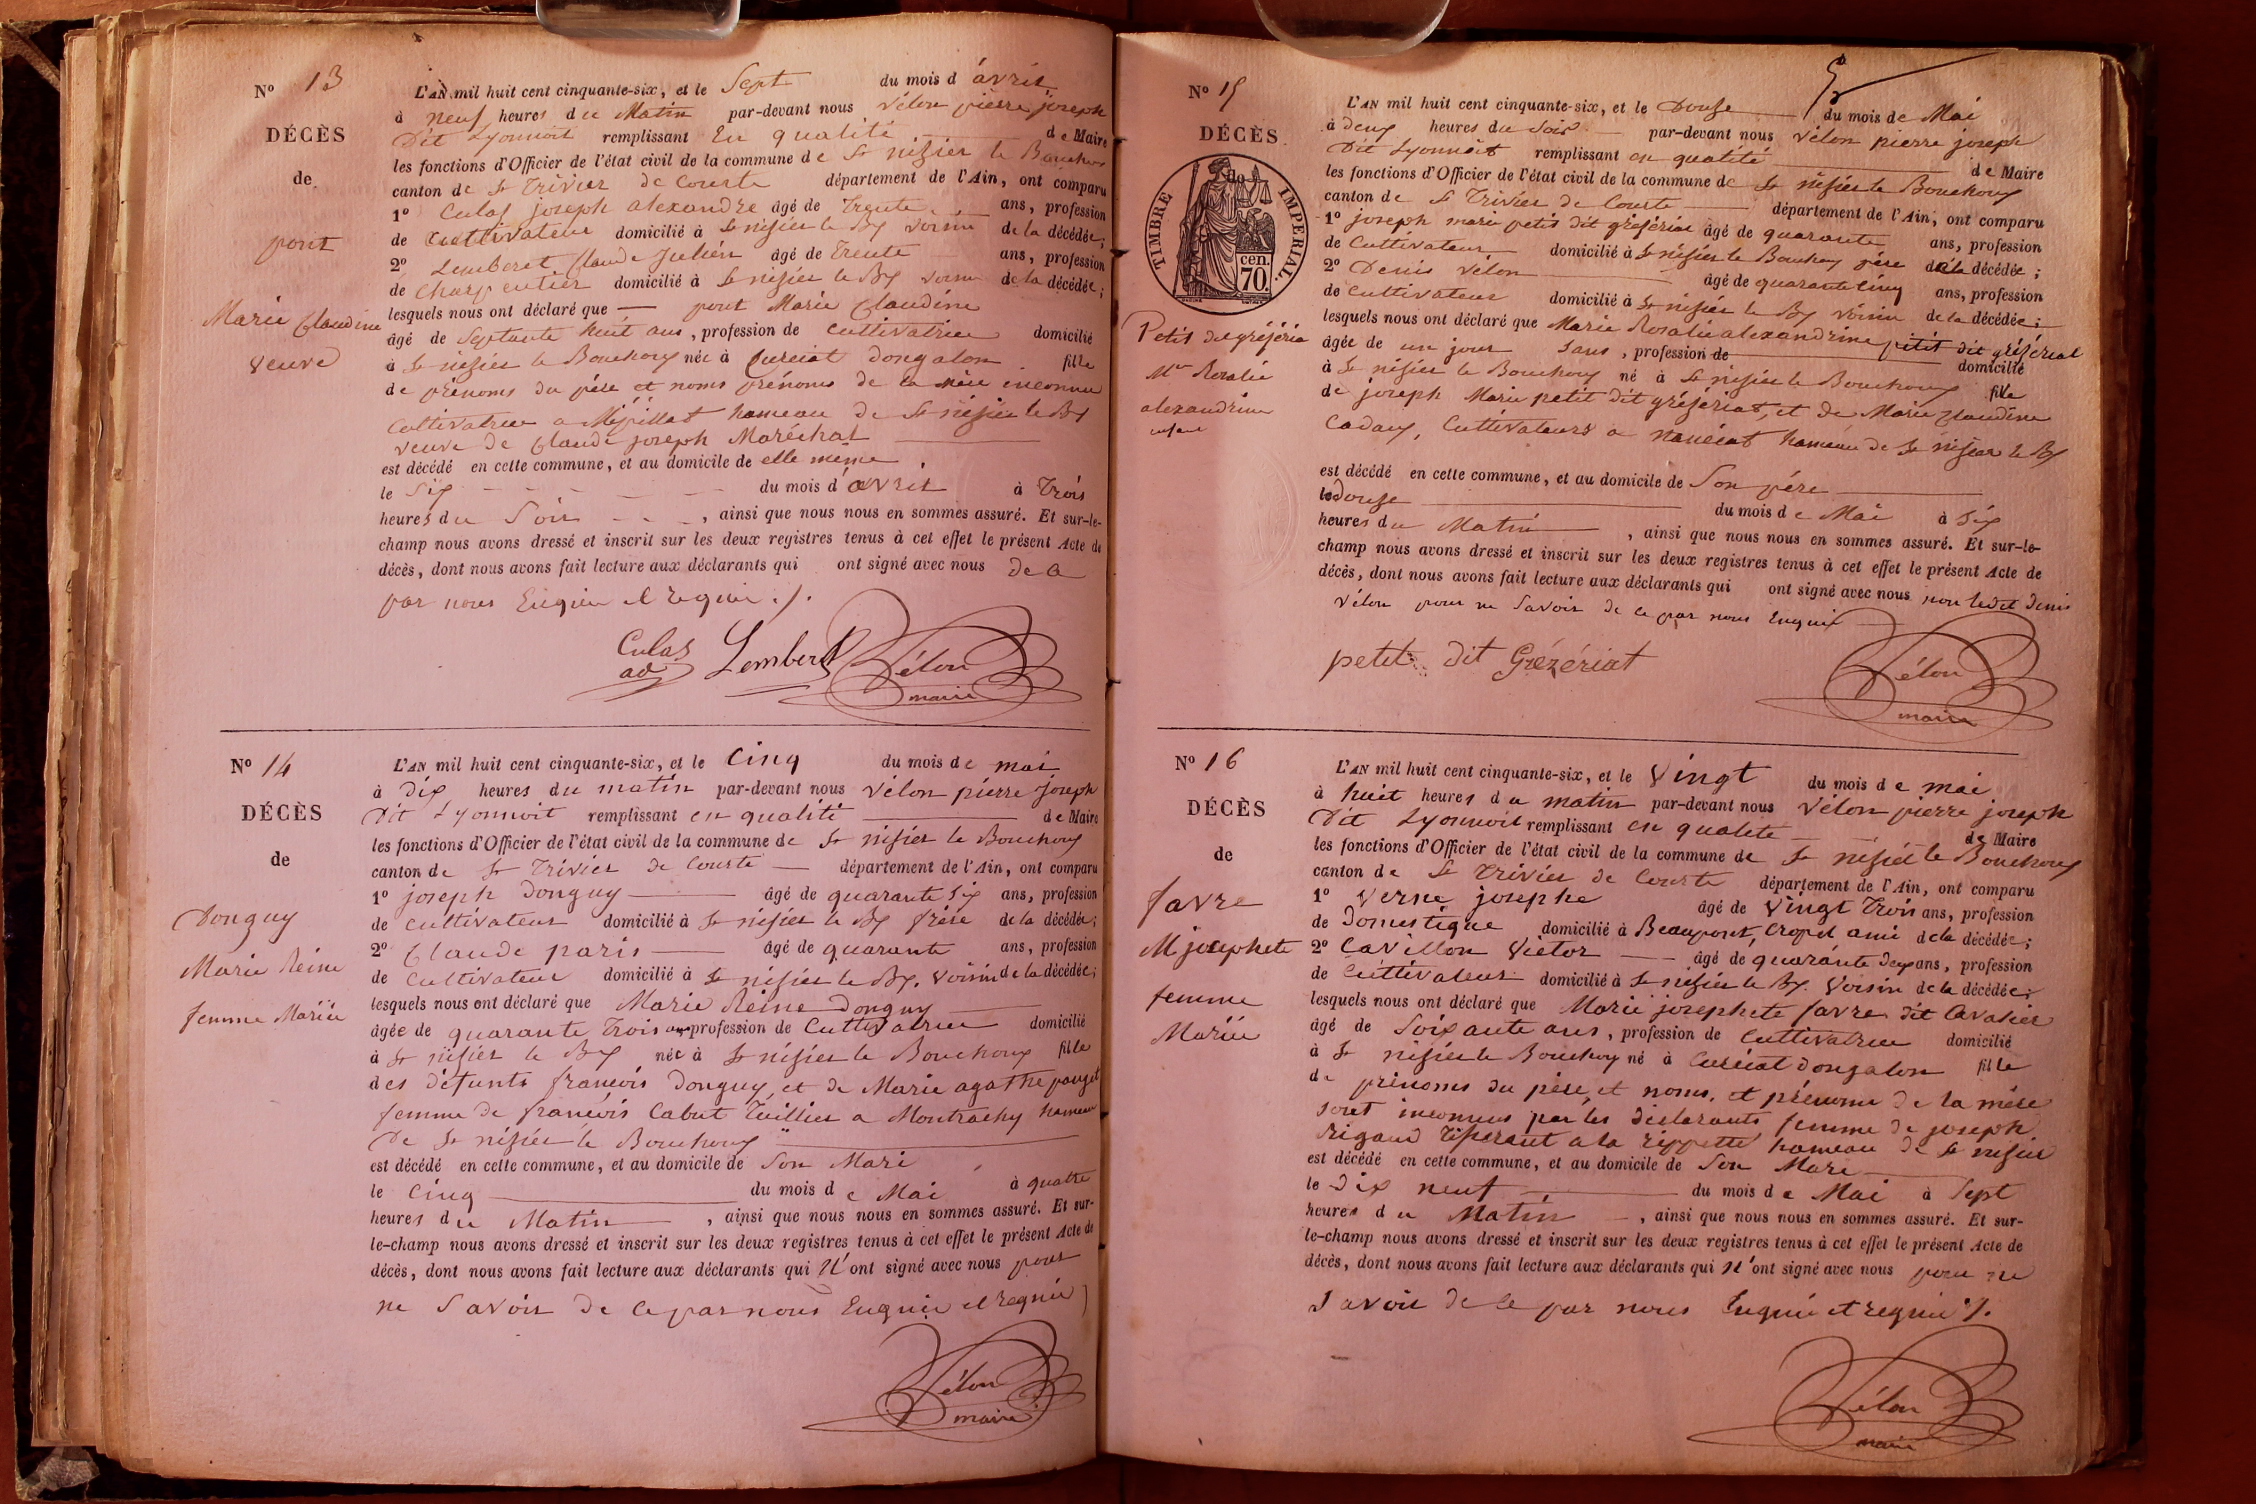 N° 13
DÉCÈS
de
pont
Marie Claudine
veuve
L'AN mil huit cent cinquante-six, et le Sept du mois d'avril
à neuf heures du Matin par-devant nous Vélon pierre joseph
Dit Lyonnoit remplissant En qualité de Maire
les fonctions d'Officier de l'état civil de la commune de St nisier le Bouchoux
canton de St Trivier de Courte département de l'Ain, ont comparu
1° Culas joseph alexandre âgé de Trente ans, profession
de Cultivateur domicilié à St nisier le Bx voisin de la décédée;
2° Lemberet Claude Julien âgé de Trente ans, profession
de Charpentier domicilié à St nisier le Bx voisin de la décédée;
lesquels nous ont déclaré que pont Marie Claudine
âgé de Septante huit ans, profession de Cultivatrice domicilié
à St nisier le Bouchoux née à Curciat dongalon fille
de prénoms du père et noms prénoms de la mère inconnu
Cultivatrice a Mépillat hameau de St nisier le Bx
veuve de Claude joseph Maréchal
est décédé en cette commune, et au domicile de elle même
le Six du mois d'avril à Trois
heures du Soir, ainsi que nous nous en sommes assuré. Et sur-le-
champ nous avons dressé et inscrit sur les deux registres tenus à cet effet le présent Acte de
décès, dont nous avons fait lecture aux déclarants qui ont signé avec nous de ce
par nous Enquie et requie ./.
Culas
Lemberet
Vélon
maire
N° 14
DÉCÈS
de
Donguy
Marie Reine
femme Mariée
L'AN mil huit cent cinquante-six, et le Cinq du mois de mai
à Dix heures du matin par-devant nous Vélon pierre joseph
Dit Lyonnoit remplissant en qualité de Maire
les fonctions d'Officier de l'état civil de la commune de St nisier le Bouchoux
canton de St Trivier de Courte département de l'Ain, ont comparu
1° joseph Donguy âgé de quarante Six ans, profession
de Cultivateur domicilié à St nisier le Bx frère de la décédée;
2° Claude paris âgé de quarante ans, profession
de Cultivateur domicilié à St nisier le Bx. voisin de la décédée;
lesquels nous ont déclaré que Marie Reine Donguy
âgée de quarante Trois ans profession de Cultivatrice domicilié
à St nisier le Bx née à St nisier le Bouchoux fille
des défunts francois Donguy et de Marie agathe pauget
femme de francois Cabut Tuillier a Montrachy hameau
De St nisier le Bouchoux
est décédé en cette commune, et au domicile de Son Mari
le Cinq du mois de Mai à quatre
heures du Matin, ainsi que nous nous en sommes assuré. Et sur-
le-champ nous avons dressé et inscrit sur les deux registres tenus à cet effet le présent Acte de
décès, dont nous avons fait lecture aux déclarants qui N'ont signé avec nous pour
ne Savoir de ce par nous Enquie et requie
Vélon
maire
N° 15
DÉCÈS
de
TIMBRE IMPERIAL.
cen.
70.
Petit dit gréjéria
Mie Rosalie
alexandrine
enfant
L'AN mil huit cent cinquante-six, et le Douse du mois de Mai
à deux heures du Soir par-devant nous Vélon pierre joseph
Dit Lyonnoit remplissant en qualité de Maire
les fonctions d'Officier de l'état civil de la commune de St nisier le Bouchoux
canton de St Trivier de Courte département de l'Ain, ont comparu
1° joseph marie petit dit gréfériat âgé de quarante ans, profession
de Cultivateur domicilié à St nisier le Bouchoux père de la décédée;
2° Denis Vélon âgé de quarante cinq ans, profession
de Cultivateur domicilié à St nisier le Bx voisin de la décédée;
lesquels nous ont déclaré que Marie Rosalie alexandrine petit dit gréfériat
âgée de un jour Sans, profession de domicilié
à St nisier le Bouchoux né à St nisier le Bouchoux fille
de joseph Marie petit dit gréfériat, et de Marie Claudine
Cadaux, Cultivateurs a nanciat hameau de St nisier le Bx
est décédé en cette commune, et au domicile de Son père
le douse du mois de Mai à Six
heures du Matin, ainsi que nous nous en sommes assuré. Et sur-le-
champ nous avons dressé et inscrit sur les deux registres tenus à cet effet le présent Acte de
décès, dont nous avons fait lecture aux déclarants qui ont signé avec nous non ledit Denis
Vélon pour ne Savoir de ce par nous Enquie
petit dit Grézériat
Vélon
maire
N° 16
DÉCÈS
de
favre
M josephete
femme
Mariée
L'AN mil huit cent cinquante-six, et le Vingt du mois de mai
à huit heures du matin par-devant nous Vélon pierre joseph
Dit Lyonnoit remplissant en qualité de Maire
les fonctions d'Officier de l'état civil de la commune de St nisier le Bouchoux
canton de St Trivier de Courte département de l'Ain, ont comparu
1° Verne josephe âgé de Vingt Trois ans, profession
de Domestique domicilié à Beaupont, Cropel ami de la décédée;
2° Cavillon Victor âgé de quarante deux ans, profession
de Cultivateur domicilié à St nisier le Bx. Voisin de la décédée;
lesquels nous ont déclaré que Marie josephete favre dit Cavalier
âgé de Soixante ans, profession de Cultivatrice domicilié
à St nisier le Bouchoux né à Curciat dongalon fille
de prénoms du père, et noms, et prénoms de la mère
sont inconnus par les déclarants femme de joseph
Rigaud Tisserant a la rippette hameau de St nisier
est décédé en cette commune, et au domicile de Son Mari
le Dix neuf du mois de Mai à Sept
heures du Matin, ainsi que nous nous en sommes assuré. Et sur-
le-champ nous avons dressé et inscrit sur les deux registres tenus à cet effet le présent Acte de
décès, dont nous avons fait lecture aux déclarants qui N'ont signé avec nous pour ne
Savoir de ce par nous Enquie et requie ./.
Vélon
maire